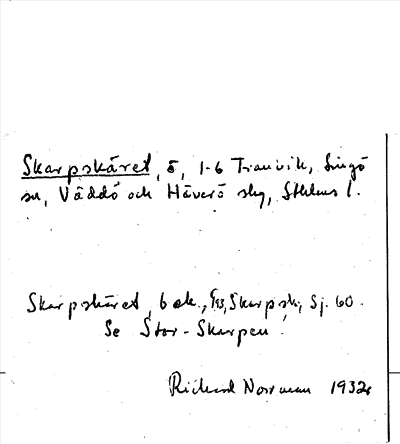 Skarpskäret, ö, 1-6 Tranvik, Singö
sn, Väddö och Häverö skg, Sthlms l.
Skarpskäret, b ek., Skarpsk, Sj. 60.
Se Stor-Skarpen.
Rickard Norrman 1932